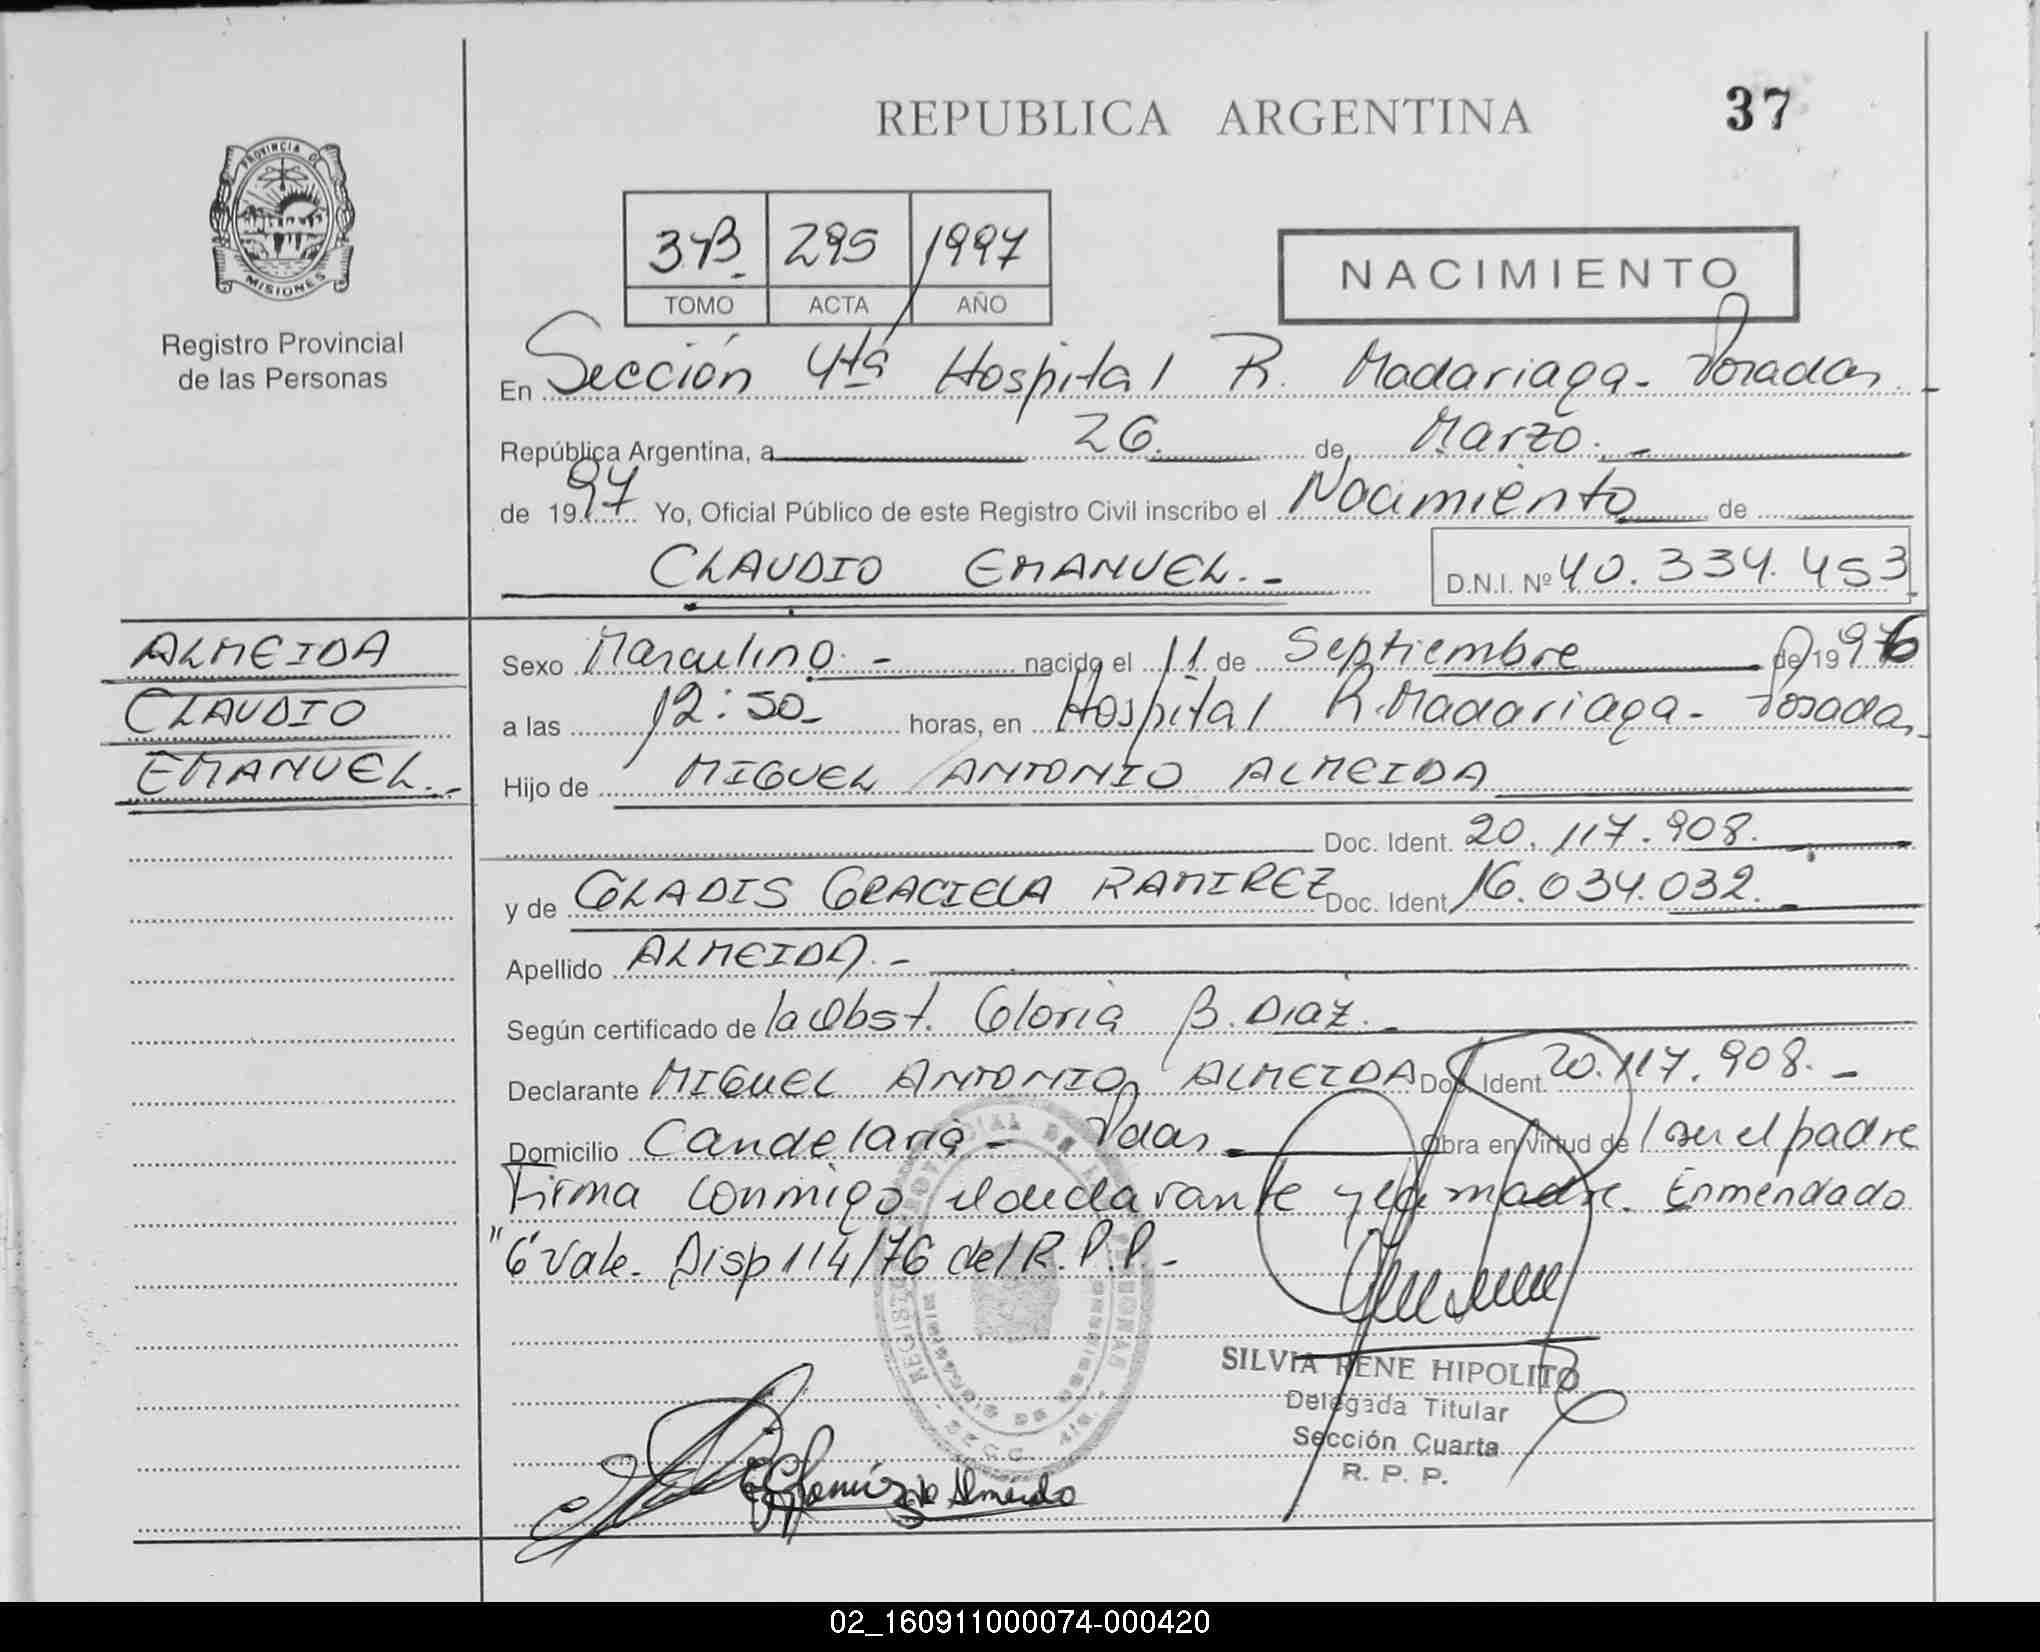 REPUBLICA ARGENTINA
37
PROVINCIA DE
MISIONES
Registro Provincial
de las Personas
295 1997
TOMO ACTA AÑO
NACIMIENTO
En Sección 4ta Hospital R. Madariaga - Posadas.-
República Argentina, a 26. de Marzo. -
de 1997 Yo, Oficial Público de este Registro Civil inscribo el Nacimiento de
CLAUDIO EMANUEL.- D.N.I. Nº 40.334.453
ALMEIDA
CLAUDIO
EMANUEL.-
Sexo Masculino. - nacido el 11 de Septiembre de 1996
a las 12:50- horas, en Hospital R. Madariaga - Posadas
Hijo de MIGUEL ANTONIO ALMEIDA
Doc. Ident. 20.117.908.
y de GLADIS GRACIELA RAMIREZ Doc. Ident. 16.034.032.
Apellido ALMEIDA. -
Según certificado de la Obst. Gloria B. Diaz.-
Declarante MIGUEL ANTONIO ALMEIDA Doc. Ident. 20.117.908. -
Domicilio Candelaria - Pdas Obra en virtud de ser el padre
Firma conmigo el declarante y la madre. Enmendado
"6" Vale. Disp 114/76 del R.P.P.-
SILVIA RENE HIPOLITO
Delegada Titular
Sección Cuarta
R. P. P.
02_160911000074-000420